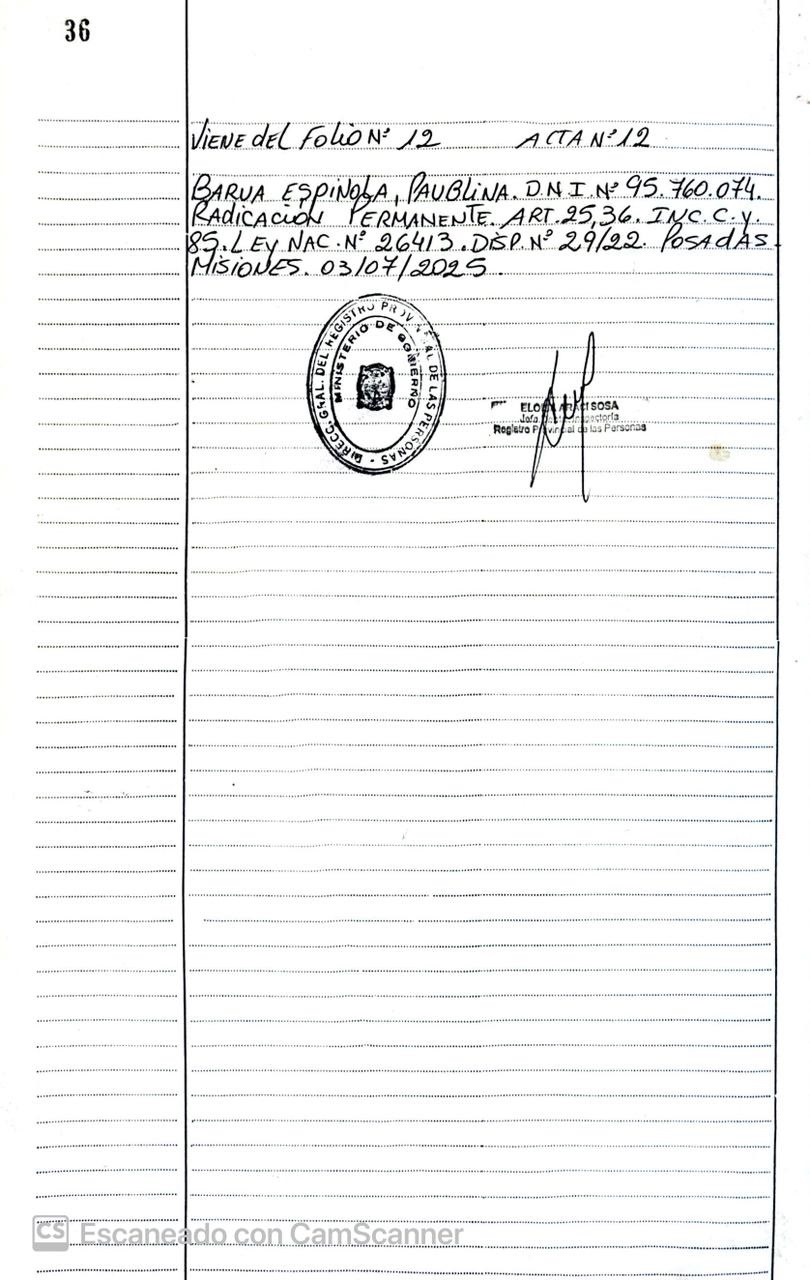 36
VIENE del FOLIO Nº 12 ACTA Nº 12
BARUA ESPINOLA, PAUBLINA. D.N.I. Nº 95.760.074.
RAdicACiON PERMANENTE. ART. 25,36. INC. C. y.
85. LEy NAC. Nº 26413. DISP. Nº 29/22. POSAdAS
MiSiONES. 03/07/2025.
DIRECC. GRAL. DEL REGISTRO PROVINCIAL DE LAS PERSONAS -
MINISTERIO DE GOBIERNO
SOSA
Registro Provincial de las Personas
CS Escaneado con CamScanner